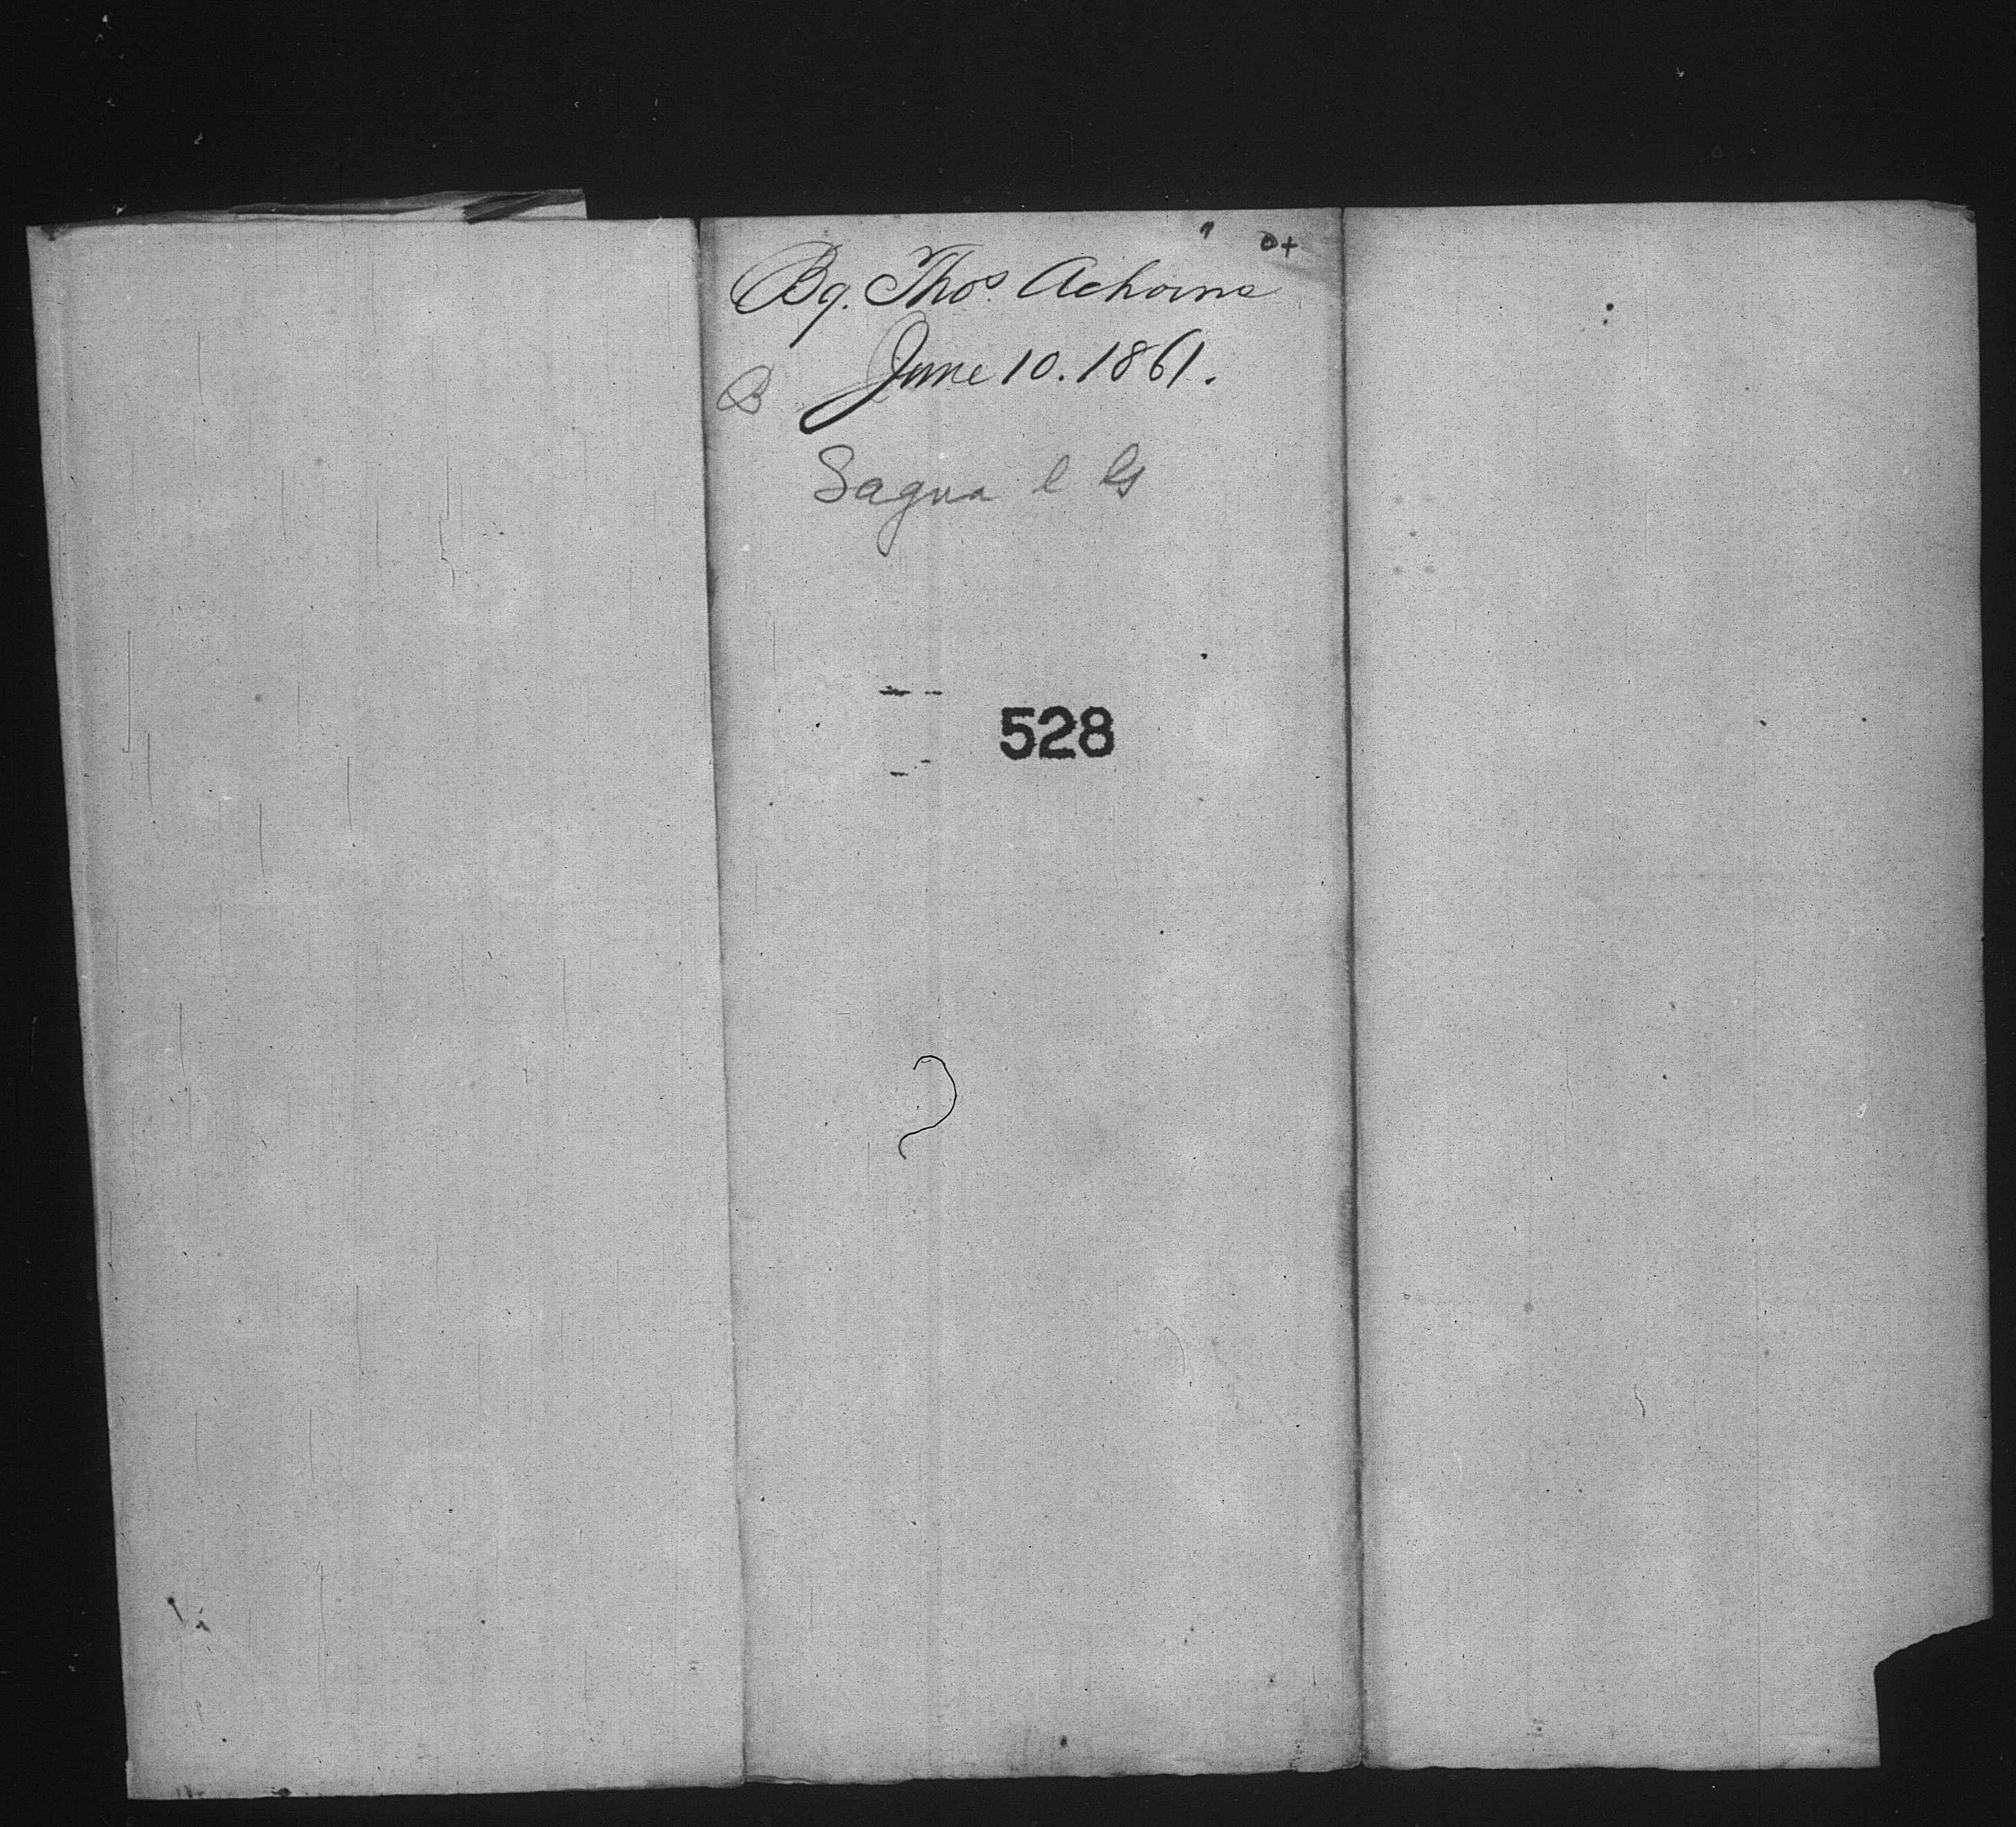 Bq. Thos. Achorne
June 10. 1861.
B
Sagua l G
528